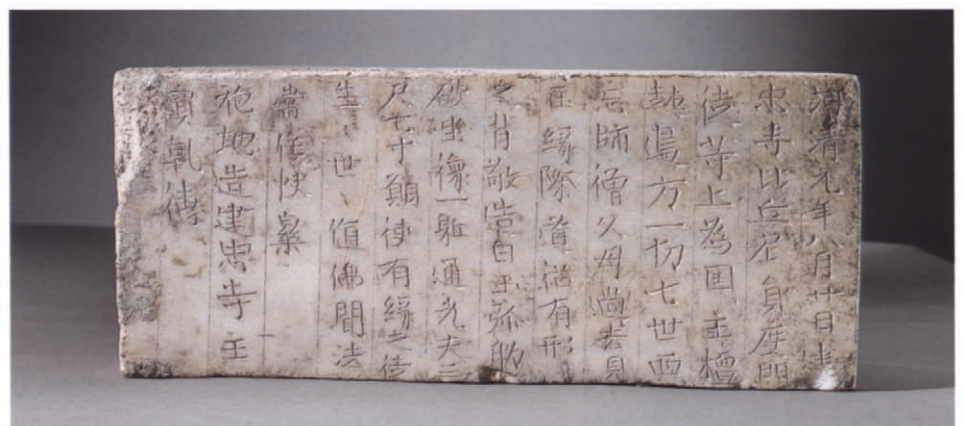 河清元年八月廿日建
忠寺比丘尼員度門
徒等上為囯主檀
越邊方一切七世西
忘師僧父母尚去見
在緣際道俗有形
之背敬造白玉弥勒
破坐像一軀通光夫二
尺七寸願使有緣之徒
生世〻值佛聞法
常住快樂
施地造建忠寺主
賈乾傳